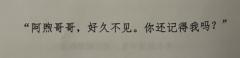 “阿煦哥哥，好久不见。你还记得我吗？”